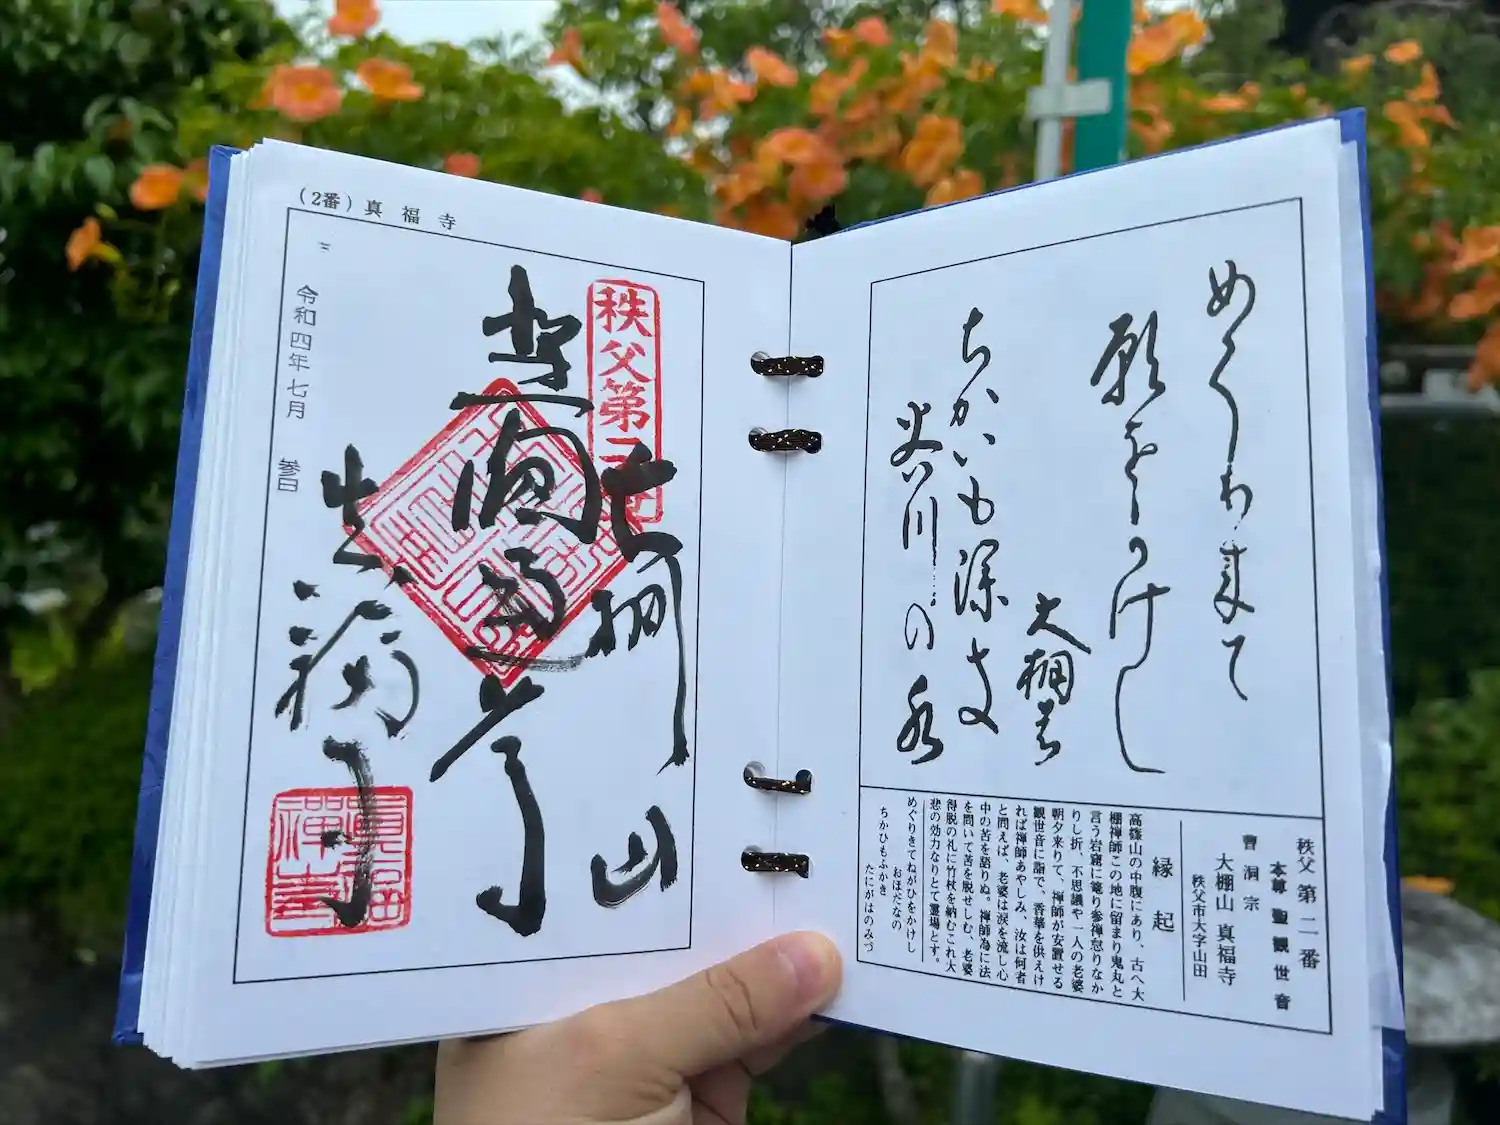 めぐり来て
願をかけし
大棚の
ちかいも深き
谷川の水
秩父第二番
本尊 聖観世音
曹洞宗
大棚山 真福寺
秩父市大字山田
縁起
高篠山の中腹にあり、古へ大
棚禅師この地に留まり鬼丸と
言う岩窟に篭り参禅怠りなか
りし折、不思議や一人の老婆
朝夕来りて、禅師が安置せる
観世音に詣で、香華を供えけ
れば禅師あやしみ、汝は何者
と問えば、老婆は涙を流し心
中の苦を語りぬ。禅師為に法
を問いて苦を脱せしむ、老婆
得脱の礼に竹杖を納むこれ大
悲の効力なりとて霊場とす。
めぐりきてねがひをかけし
おほだなの
ちかひもふかき
たにがはのみづ
(2番)真福寺
秩父第二
大棚山
真福寺
令和四年七月 参日